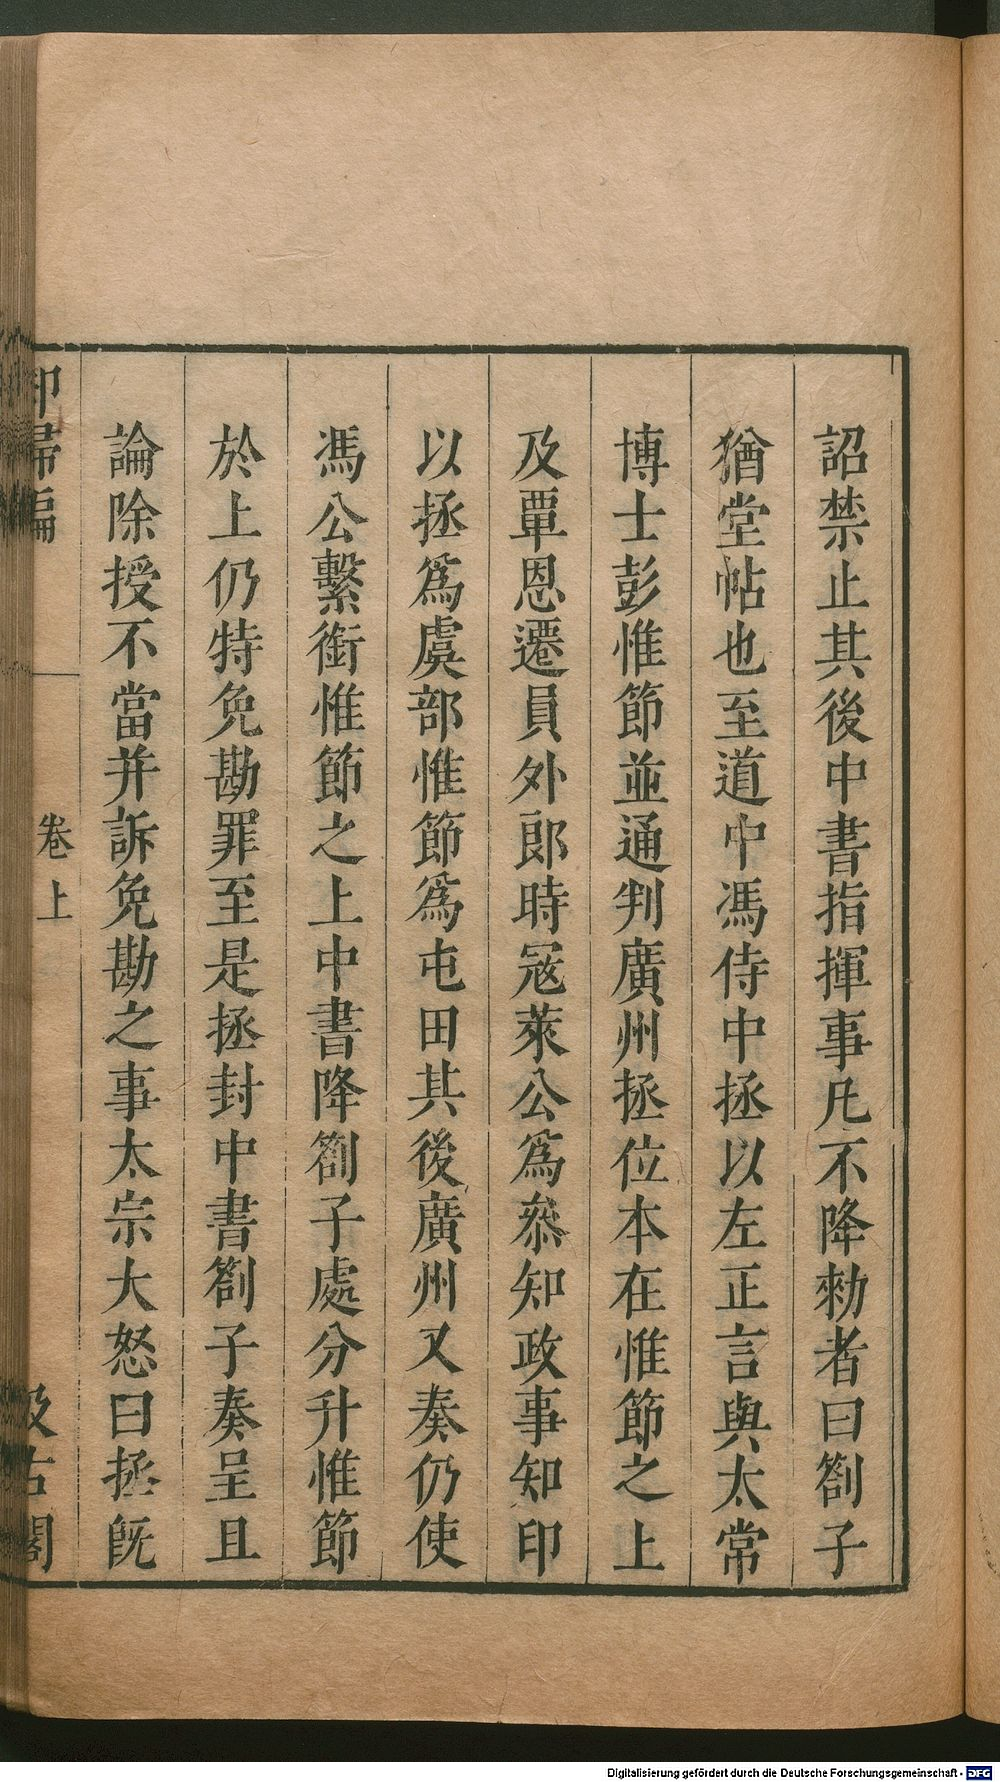 詔禁止其後中書指揮事凡不降勑者曰劄子
猶堂帖也至道中馮侍中拯以左正言與太常
博士彭惟節並通判廣州拯位本在惟節之上
及覃恩遷員外郎時寇萊公爲叅知政事知印
以拯爲虞部惟節爲屯田其後廣州又奏仍使
馮公繫銜惟節之上中書降劄子處分升惟節
於上仍特免勘罪至是拯封中書劄子奏呈且
論除授不當并訴免勘之事太宗大怒曰拯既
卻掃編
卷上
汲古閣
Digitalisierung gefördert durch die Deutsche Forschungsgemeinschaft - DFG